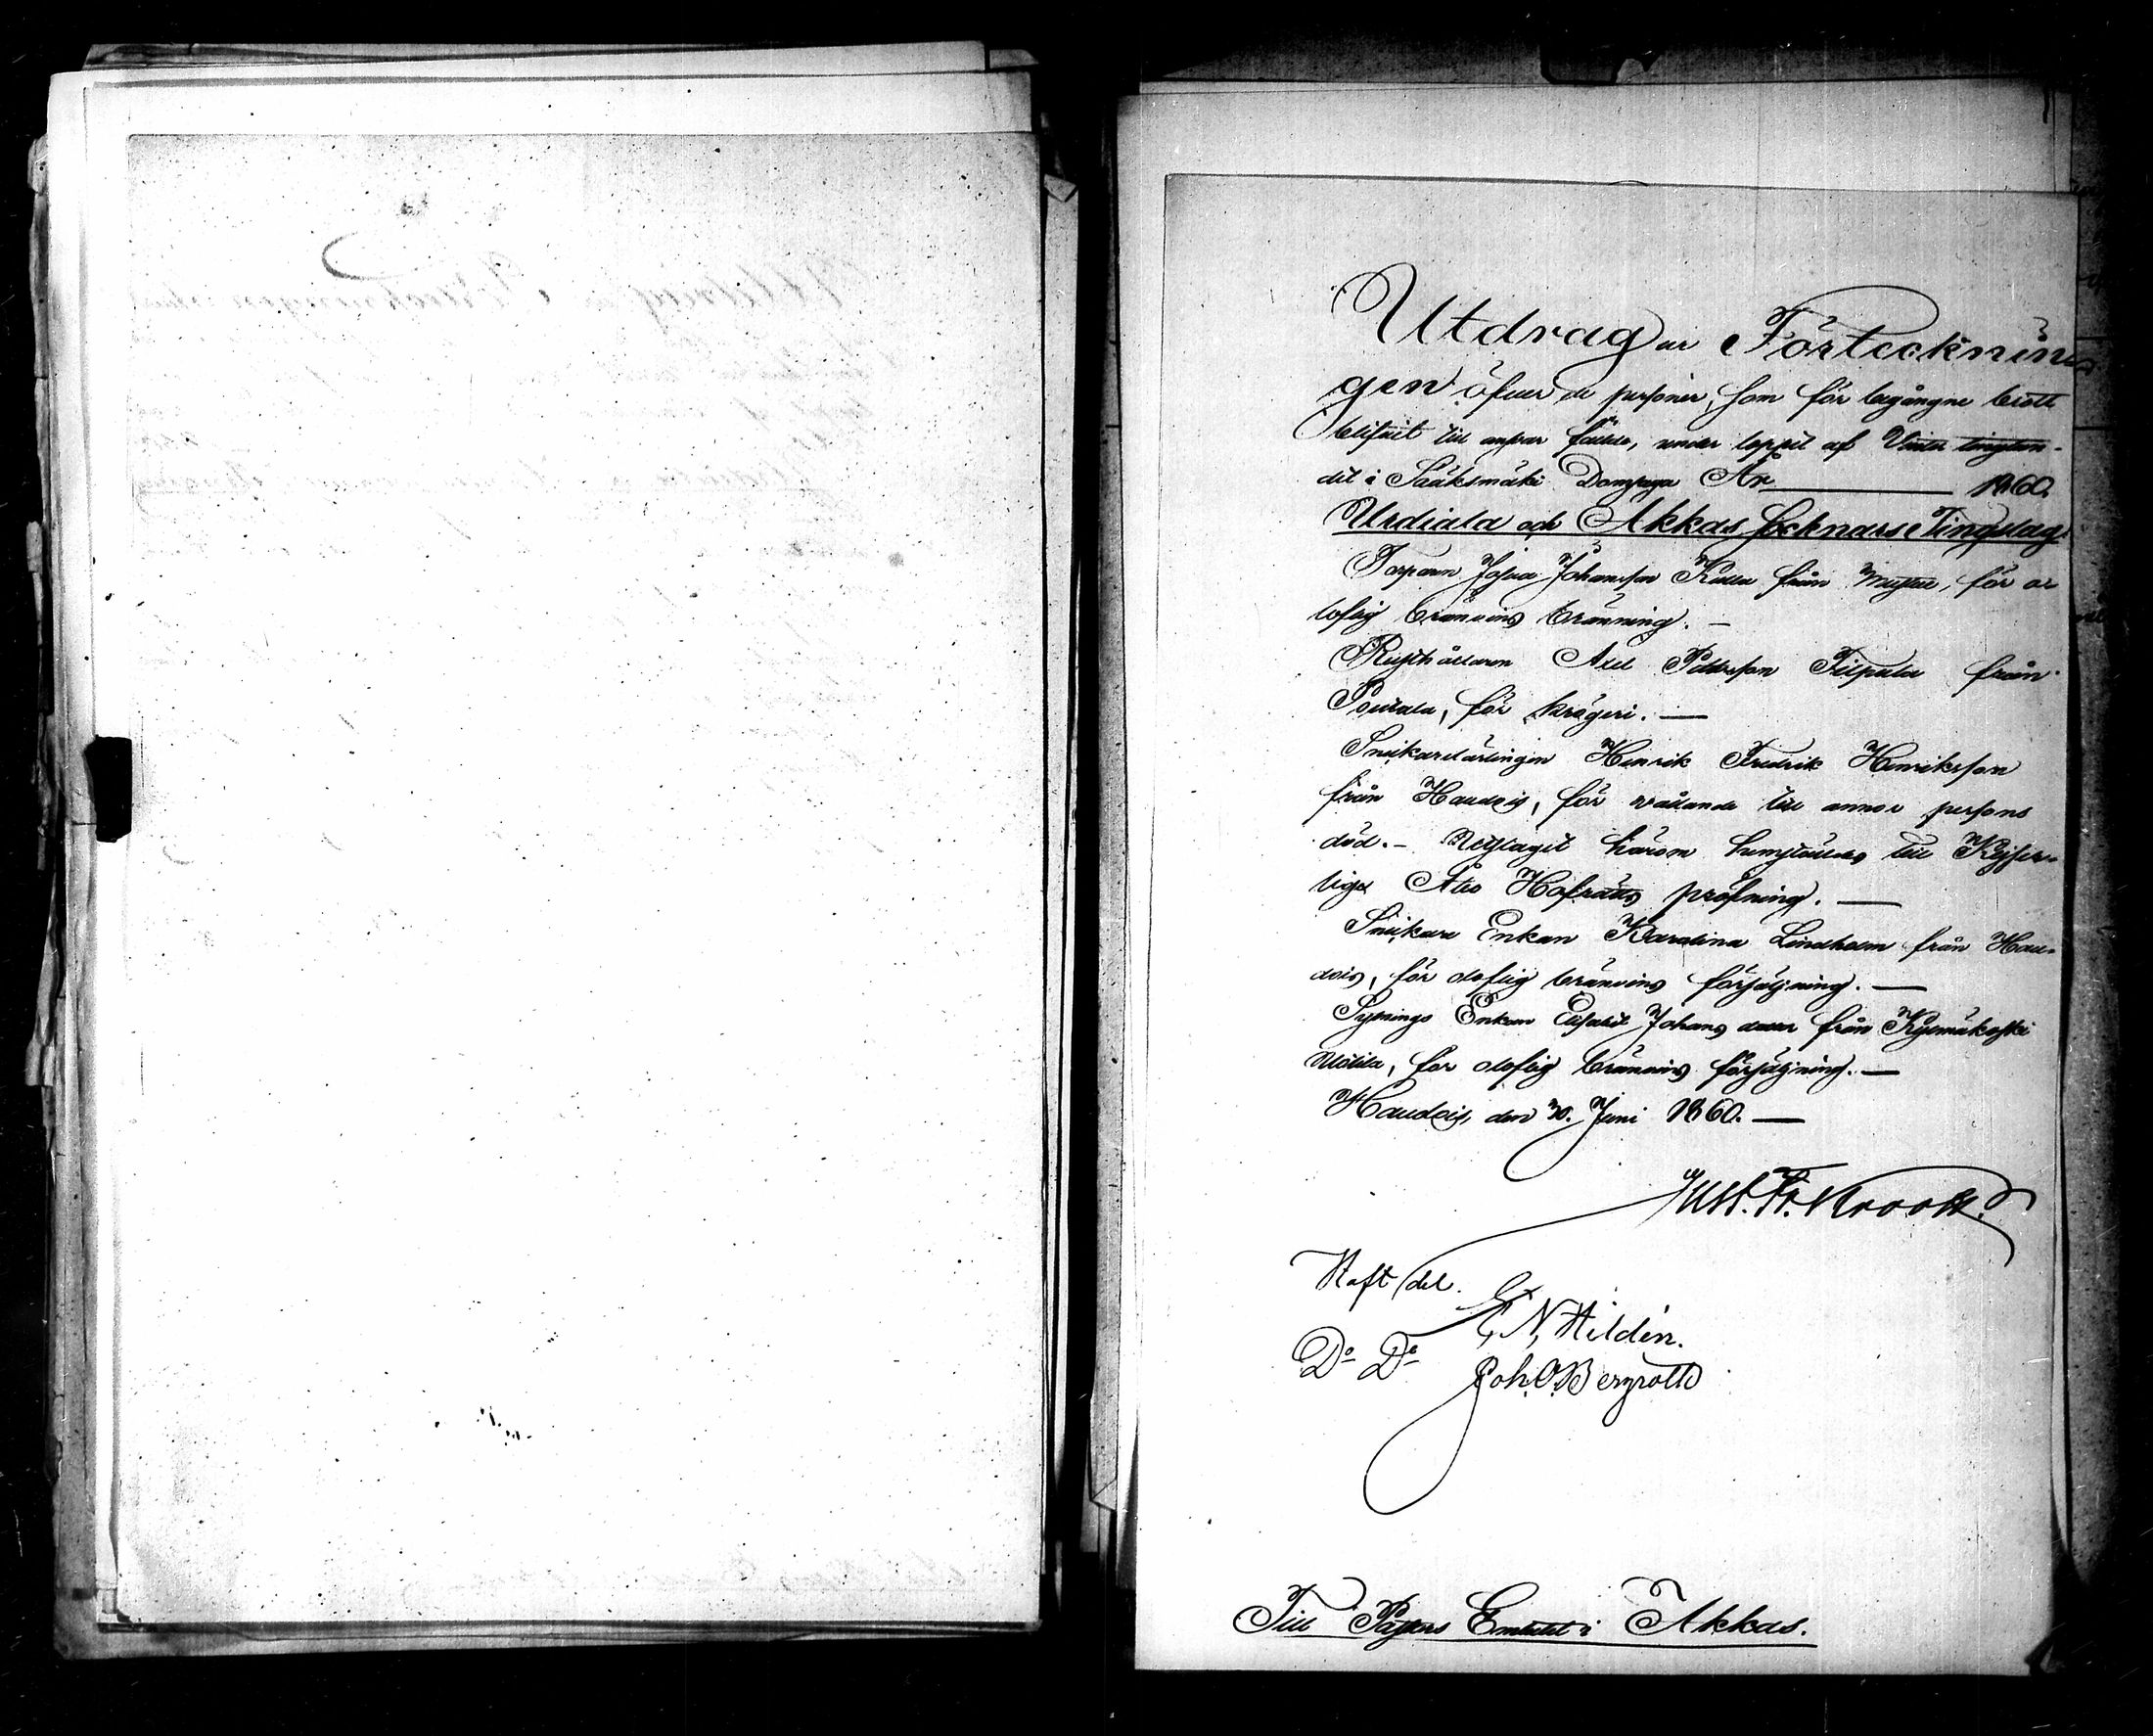 Utdrag ur Förteckning
gen öfver de personer, som för begångne brott
blifvit till ansvar fällde, under loppet af Vinter tingetun-
det i Sääksmäki Domsaga År 1860.
Urdiala och Akkas Socknars Tingslag.
Torparen Josua Johansson Kulla från, för o-
loflig bränvins bränning. —
Rusthållaren Axel Pettersson Filpula från
Poutala, för krögeri. —
Snickarelärlingen Henrik Fredrik Henriksson
från Haudois, för vållande till annor persons
död. — Utslaget härom hemställdes till Kejser-
liga Åbo Hofrätts pröfning. —
Snickare Enkan Karolina Lindholm från Hau-
dois, för oloflig bränvins försäljning. —
Sytnings Enkan Elisabet Johans dotter från Kylmäkoski
Uotila, for oloflig bränvins försäljning. —
Haudois, den 30. Juni 1860. —
Gust. Fr. Krook.
Häft del.
E, N, Hildén.
Do Do Joh. O. Bergroth
Till Pastors Embetet i Akkas.